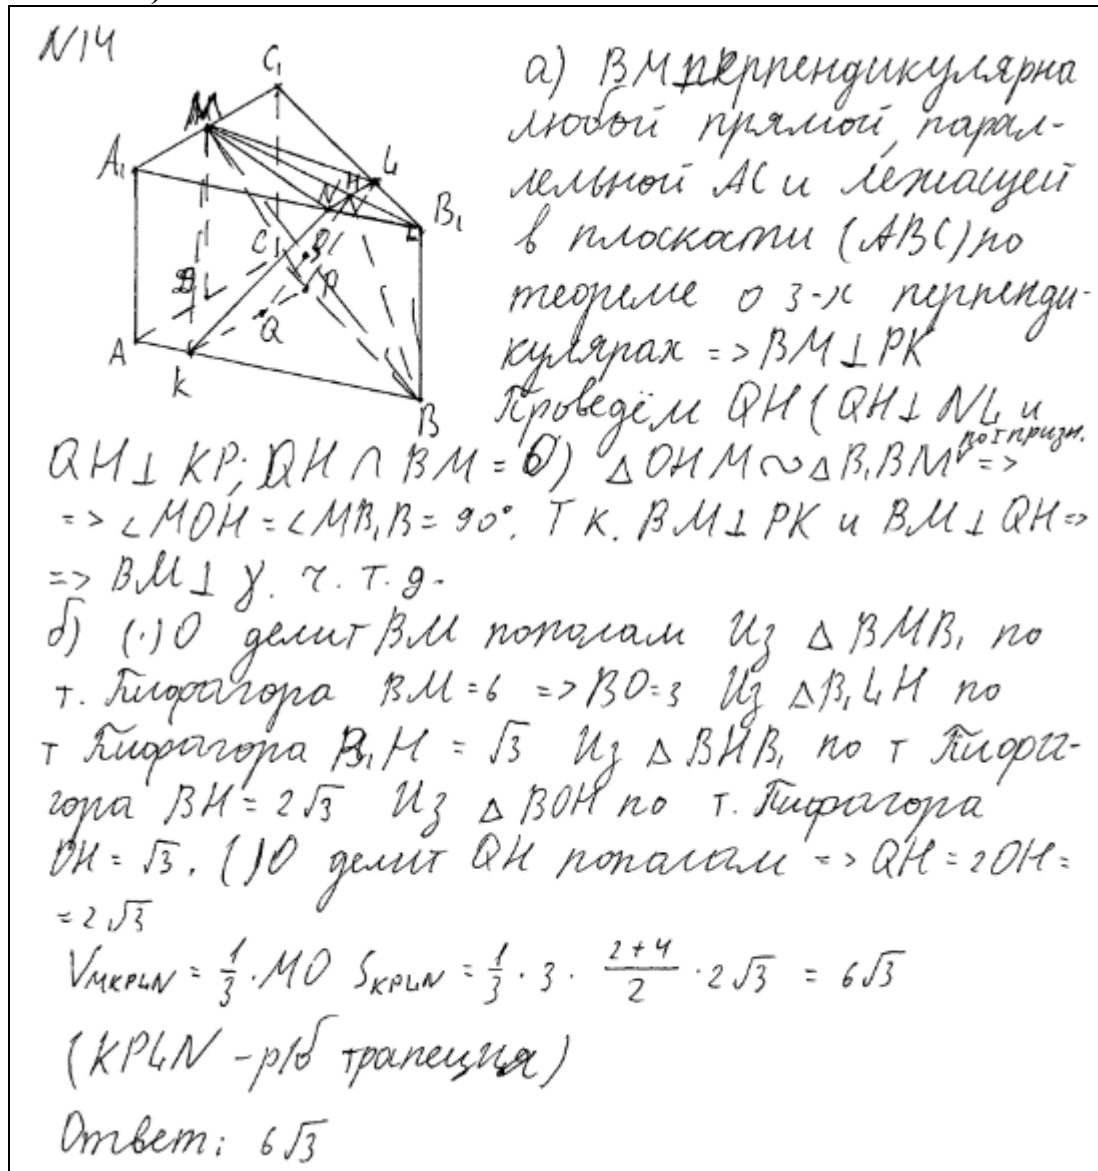 N14
C₁
M
A₁
L
N
H
B₁
C
O
D
P
Q
A
K
B
а) BM⊥перпендикулярна
любой прямой, парал-
лельной AC и лежащей
в плоскати (ABC) по
теореме о 3-х перпенди-
кулярах => BM ⊥ PK
Проведём QH (QH ⊥ NL и
QH ⊥ KP; QH ∩ BM = O) △OHM ∾ △B₁BM по I призн. =>
=> ∠MOH = ∠MB₁B = 90°. Т к. BM ⊥ PK и BM ⊥ QH =>
=> BM ⊥ γ. ч. т. д.
б) (·) O делит BM пополам Из △ BMB₁ по
т. Пифагора BM = 6 => BO = 3 Из △B₁LH по
т Пифагора B₁H = √3 Из △ BHB₁ по т Пифа-
гора BH = 2√3 Из △ BOH по т. Пифагора
OH = √3. ( ) O делит QH пополам => QH = 2OH =
= 2√3
V_MKPLN = 1/3 · MO S_KPLN = 1/3 · 3 · (2+4)/2 · 2√3 = 6√3
(KPLN - р/б трапеция)
Ответ: 6√3